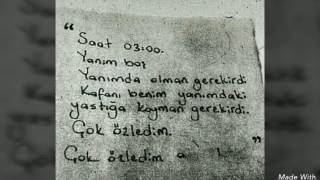 "
Saat 03:00.
Yanım boş
Yanımda olman gerekirdi
Kafanı benim yanımdaki
yastığa koyman gerekirdi.
Çok özledim.
Çok özledim
"
Made With